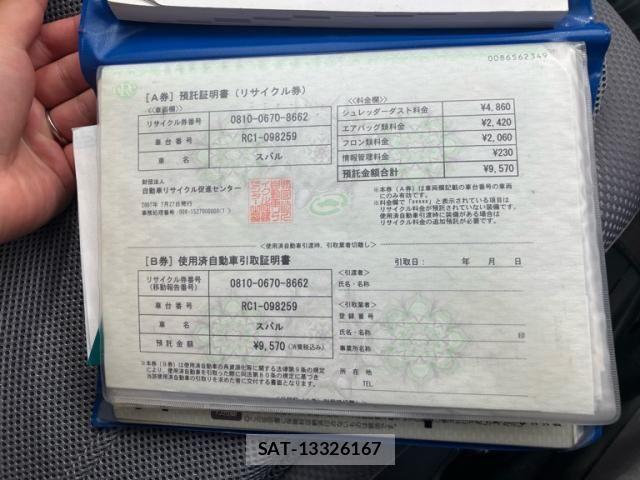 0086562349
［A券］預託証明書（リサイクル券）
<<車両欄>>
リサイクル券番号 0810-0670-8662
車台番号 RC1-098259
車名 スバル
<<料金欄>>
シュレッダーダスト料金 ¥4,860
エアバッグ類料金 ¥2,420
フロン類料金 ¥2,060
情報管理料金 ¥230
預託金額合計 ¥9,570
財団法人
自動車リサイクル促進センター
2007年 7月27日発行
＊本券（A券）は車両欄記載の車台番号の車両
にのみ有効です。
＊料金欄で「*****」と表示されている項目は
リサイクル料金が預託されていない装備です。
使用済自動車引渡時に装備がある場合は
リサイクル料金の追加預託が必要です。
<使用済自動車引渡時、引取業者切離し>
［B券］使用済自動車引取証明書
引取日： 年 月 日
リサイクル券番号
(移動報告番号) 0810-0670-8662
車台番号 RC1-098259
車名 スバル
預託金額 ¥9,570 (消費税込み)
<引渡者>
氏名・名称
<引取業者>
登録番号
氏名・名称 印
事業所名称
所在地
TEL
＊本券（B券）は使用済自動車の再資源化等に関する法律第9条の規定
により、使用済自動車を引取った際に同法第80条の規定に基づき
当該使用済自動車の引取りを求めた者に交付する書面となります。
SAT-13326167